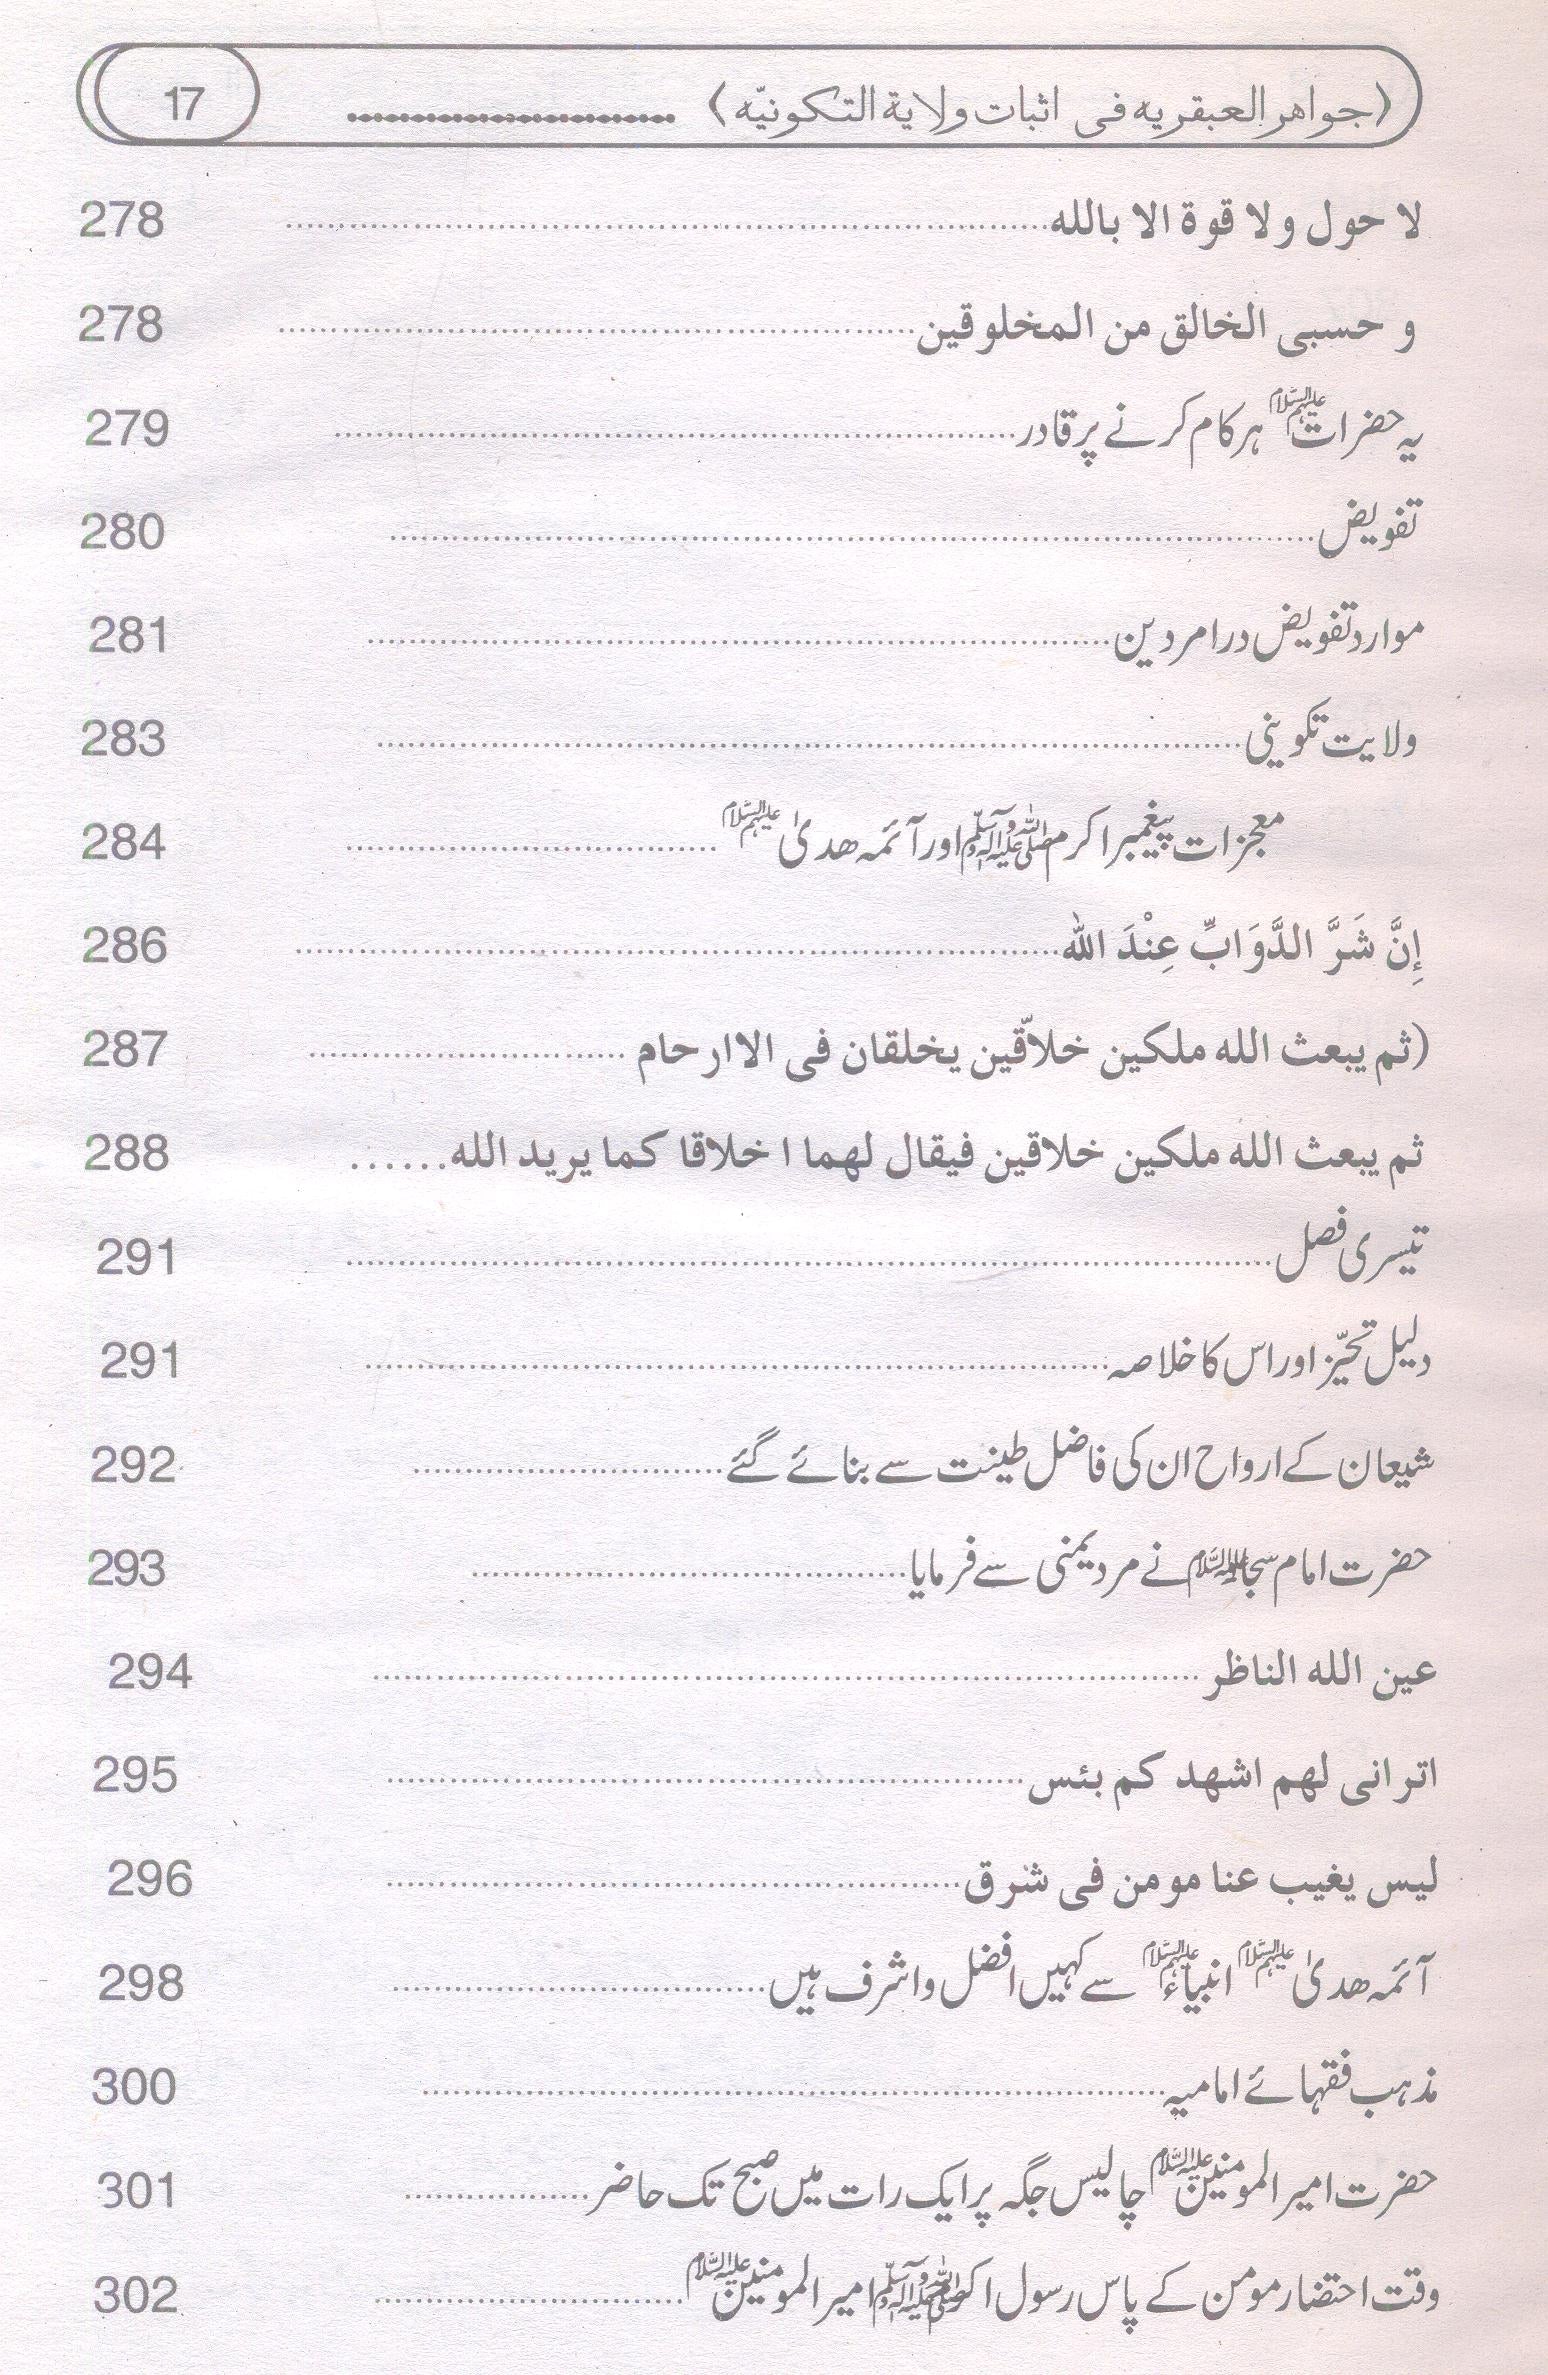 ﴿جواهر العبقریه فی اثبات ولایة التکونیّه﴾ .......................... 17
لا حول ولا قوة الا بالله .......................... 278
و حسبی الخالق من المخلوقین .......................... 278
یہ حضرات علیہم السلام ہر کام کرنے پر قادر .......................... 279
تفویض .......................... 280
موارد تفویض در امر دین .......................... 281
ولایت تکوینی .......................... 283
معجزات پیغمبر اکرم صلی اللہ علیہ وآلہ وسلم اور آئمہ ھدیٰ علیہم السلام .......................... 284
إِنَّ شَرَّ الدَّوَابِّ عِنْدَ الله .......................... 286
(ثم یبعث الله ملکین خلاّقین یخلقان فی الاارحام .......................... 287
ثم یبعث الله ملکین خلاقین فیقال لهما اخلاقا کما یرید الله ...... 288
تیسری فصل .......................... 291
دلیل تحیّز اور اس کا خلاصہ .......................... 291
شیعان کے ارواح ان کی فاضل طینت سے بنائے گئے .......................... 292
حضرت امام سجاد علیہ السلام نے مرد یمنی سے فرمایا .......................... 293
عین الله الناظر .......................... 294
اترانی لهم اشهد کم بئس .......................... 295
لیس یغیب عنا مومن فی شرق .......................... 296
آئمہ ھدیٰ علیہم السلام انبیاء علیہم السلام سے کہیں افضل و اشرف ہیں .......................... 298
مذہب فقہائے امامیہ .......................... 300
حضرت امیر المومنین علیہ السلام چالیس جگہ پر ایک رات میں صبح تک حاضر .......................... 301
وقت احتضار مومن کے پاس رسول اکرم صلی اللہ علیہ وآلہ وسلم امیر المومنین علیہ السلام .......................... 302